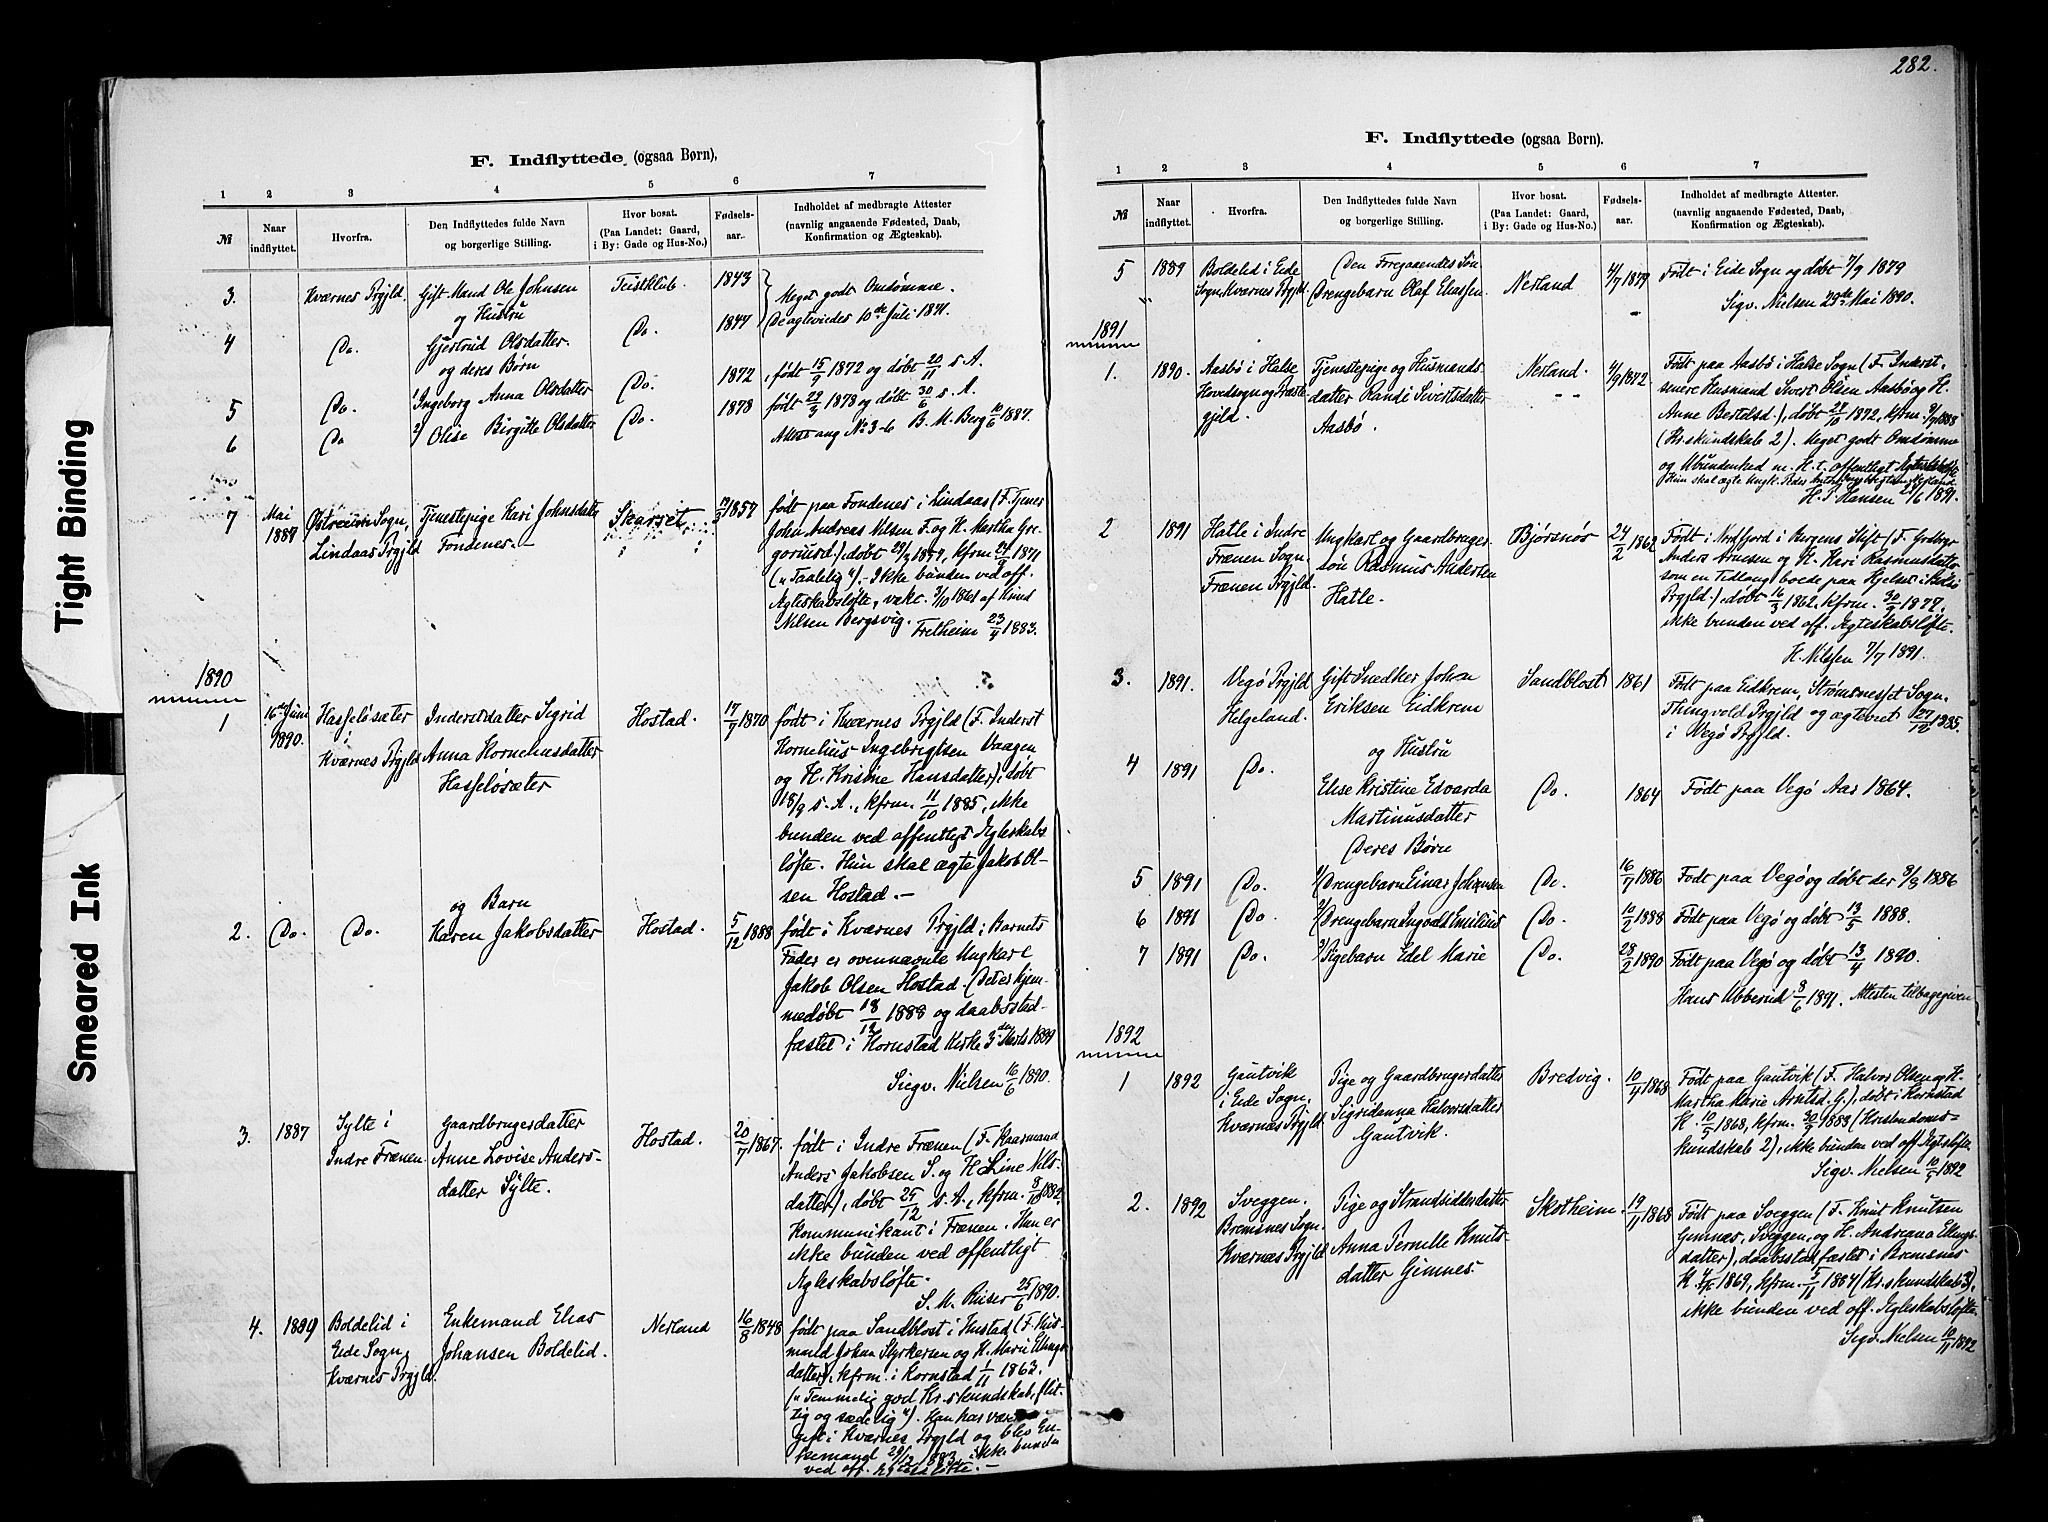 Tight Binding
Smeared Ink
F. Indflyttede (ogsaa Børn),
1 2 3 4 5 6 7
№ Naar indflyttet. Hvorfra. Den Indflyttedes fulde Navn og borgerlige Stilling. Hvor bosat. (Paa Landet: Gaard, i By: Gade og Hus-No.) Fødsels-aar. Indholdet af medbragte Attester (navnlig angaaende Fødested, Daab, Konfirmation og Ægteskab).
3. Kværnes Prgjld. Gift Mand Ole Johnsen Teistklub. 1843 Meget godt Omdømme.
og Hustru
4 Do. Gjertrud Olsdatter. Do. 1847 De ægteviedes 10de Juli 1871.
og deres Børn
5 Do. 1 Ingeborg Anna Olsdatter Do. 1872 født 15/9 1872 og døbt 20/11 s. A.
6 Do 2) Olise Birgitte Olsdatter Do. 1878 født 29/3 1878 og døbt 30/6 s. A.
Attest ang No 3-6 B. M. Berg 10/6 1887.
7 Mai 1889 Østreim Sogn, Lindaas Prgjld Tjenestepige Kari Johnsdatter Fondenes. - Skarset 1857 født paa Fondenes i Lindaas (F. Tjener
John Andreas Nilsen F. og H. Martha Gre-
goriusd.), døbt 29/3 1857, kfrm. 24/9 1871
("Taalelig"). - Ikke bunden ved off.
Ægteskabsløfte, vakc. 3/10 1861 af Knud
Nilsen Bergsvig. Frelheim 23/4 1883.
1890
1 16de Juni 1890. Hasseløsæter Kværnes Prgjld Inderstdatter Sigrid Anna Korneliusdatter Hasseløsæter Hostad. 17/7 1870 født i Kværnes Prgjld (F. Inderst
Kornelius Ingebrigtsen Vaagen
og H. Kristine Hansdatter), døbt
18/9 s. A., kfrm. 11/10 1885, ikke
bunden ved offentligt Ægteskabs
løfte. Hun skal ægte Jakob Ol-
sen Hostad. -
og Barn
2. Do. Do. Karen Jakobsdatter Hostad. 5/12 1888 født i Kværnes Prgjld; Barnets
Fader er ovennævnte Ungkarl
Jakob Olsen Hostad. (Det er hjem-
medøbt 18/12 1888 og daabsstad-
fæstet i Kornstad Kirke 3die Marts 1889
Sigv. Nielsen 16/6 1890.
3. 1887 Sylte i Indre Frænen. Gaardbrugerdatter Anne Lovise Anders-datter Sylte. Hostad. 20/7 1867. født i Indre Frænen (F. Kaarmand
Anders Jakobsen S. og H. Line Nils-
datter), døbt 25/12 s. A., kfrm. 8/10 1882.
Kommunikant i Frænen. Hun er
ikke bunden ved offentligt
Ægteskabsløfte.
S. M. Riiser 25/6 1890.
4. 1889 Boldelid i Eide Sogn, Kværnes Prgjld. Enkemand Elias Johansen Boldelid. Nerland 16/8 1848 født paa Sandblost i Hustad (F. Hus-
mand Johan Styrkersen og H. Marie Ellings
datter), kfrm. i Kornstad 1/11 1863.
("Temmelig god Kr.skundskab, flit-
tig og sædelig"). Han har været
gift i Kværnes Prgjld og blev En-
kemand 29/12 1883, ikke bunden
ved off. Ægteskabsløfte. -
282.
F. Indflyttede (ogsaa Børn).
1 2 3 4 5 6 7
№ Naar indflyttet. Hvorfra. Den Indflyttedes fulde Navn og borgerlige Stilling. Hvor bosat. (Paa Landet: Gaard, i By: Gade og Hus-No.) Fødsels-aar. Indholdet af medbragte Attester. (navnlig angaaende Fødested, Daab, Konfirmation og Ægteskab).
5 1889 Boldelid i Eide Sogn, Kværnes Prgjld. Den Foregaaendes Søn Drengebarn Olaf Eliassen. Nerland 4/7 1879 Født i Eide Sogn og døbt 7/9 1879
Sigv. Nielsen 29de Mai 1890.
1891
1. 1890. Aasbø i Halse Hovedsogn og Præste gjeld. Tjenestepige og Husmands datter Randi Sivertsdatter Aasbø. Nerland. 4/9 1872 Født paa Aasbø i Halse Sogn (F. Inderst
senere Husmand Sivert Olsen Aasbø og H.
Anne Bertelsd.), døbt 27/10 1872, kfrm. 9/9 1888
(Kr.skundskab 2). Meget godt Omdømme
og Ubundenhed m. H. t. offentligt Ægteskabsløfte
H. P. Hansen 21/6 1891.
2 1891 Hatle i Indre Frænen Sogn, Frænen Prgjld. Ungkarl og Gaardbruger-søn Rasmus Andersen Hatle. Bjørsnøs 24/2 1862 Født i Nordfjord i Bergens Stift (F. Grdbgr
Anders Arnesen og H. Kari Rasmusdatter
som en Tidlang boede paa Hjelset i Bolsø
Prgjld.), døbt 16/3 1862, kfrm. 30/9 1877,
ikke bunden ved off. Ægteskabsløfte.
H. Nilssen 7/7 1891.
3. 1891. Vegø Prgjld Helgeland. Gift Snedker Johan Eriksen Eidkrem Sandblost 1861 Født paa Eidkrem, Strømsnesset Sogn,
Thingvold Prgjld og ægteviet 27/12 1885.
i Vegø Prgjld.
og Hustru
4 1891 Do. Elise Kristine Edvarda Martinusdatter Do. 1864 Født paa Vegø Aar 1864.
Deres Børn
5 1891 Do. 1/ Drengebarn Einar Johansen Do. 16/7 1886 Født paa Vegø og døbt der 9/8 1886
6 1891 Do. 2/ Drengebarn Ingvald Emilius Do. 10/2 1888 Født paa Vegø og døbt 13/5 1888.
7 1891 Do. 3/ Pigebarn Edel Marie Do. 28/2 1890 Født paa Vegø og døbt 13/4 1890.
Hans Ubberud 8/6 1891. Attesten tilbagegiven
1892
1 1892 Gautvik i Eide Sogn, Kværnes Prgjld Pige og Gaardbrugerdatter Sigridanna Halvorsdatter Gautvik. Bredvig. 10/4 1868 Født paa Gautvik (F. Halvor Olsen og H.
Martha Marie Arntsd. G.), døbt i Kornstad
K. 10/5 1868, kfrm. 30/9 1883 (Kristendoms-
kundskab 2), ikke bunden ved off. Ægtsløfte.
Sigv. Nielsen 10/5 1892
2. 1892 Sveggen. Bremsnes Sogn. Kværnæs Prgjld Pige og Strandsidderdatter Anna Pernille Knuts-datter Gimnes. Skotheim. 19/11 1868 Født paa Sveggen (F. Knut Knutsen
Gimnæs, Sveggen, og H. Andreana Ellings
datter), daabsstadfæstet i Bremsnes
K. 1869, kfrm. 5/11 1884 (Kr.skundskab 3),
ikke bunden ved off. Ægteskabsløfte.
Sigv. Nielsen 10/11 1892